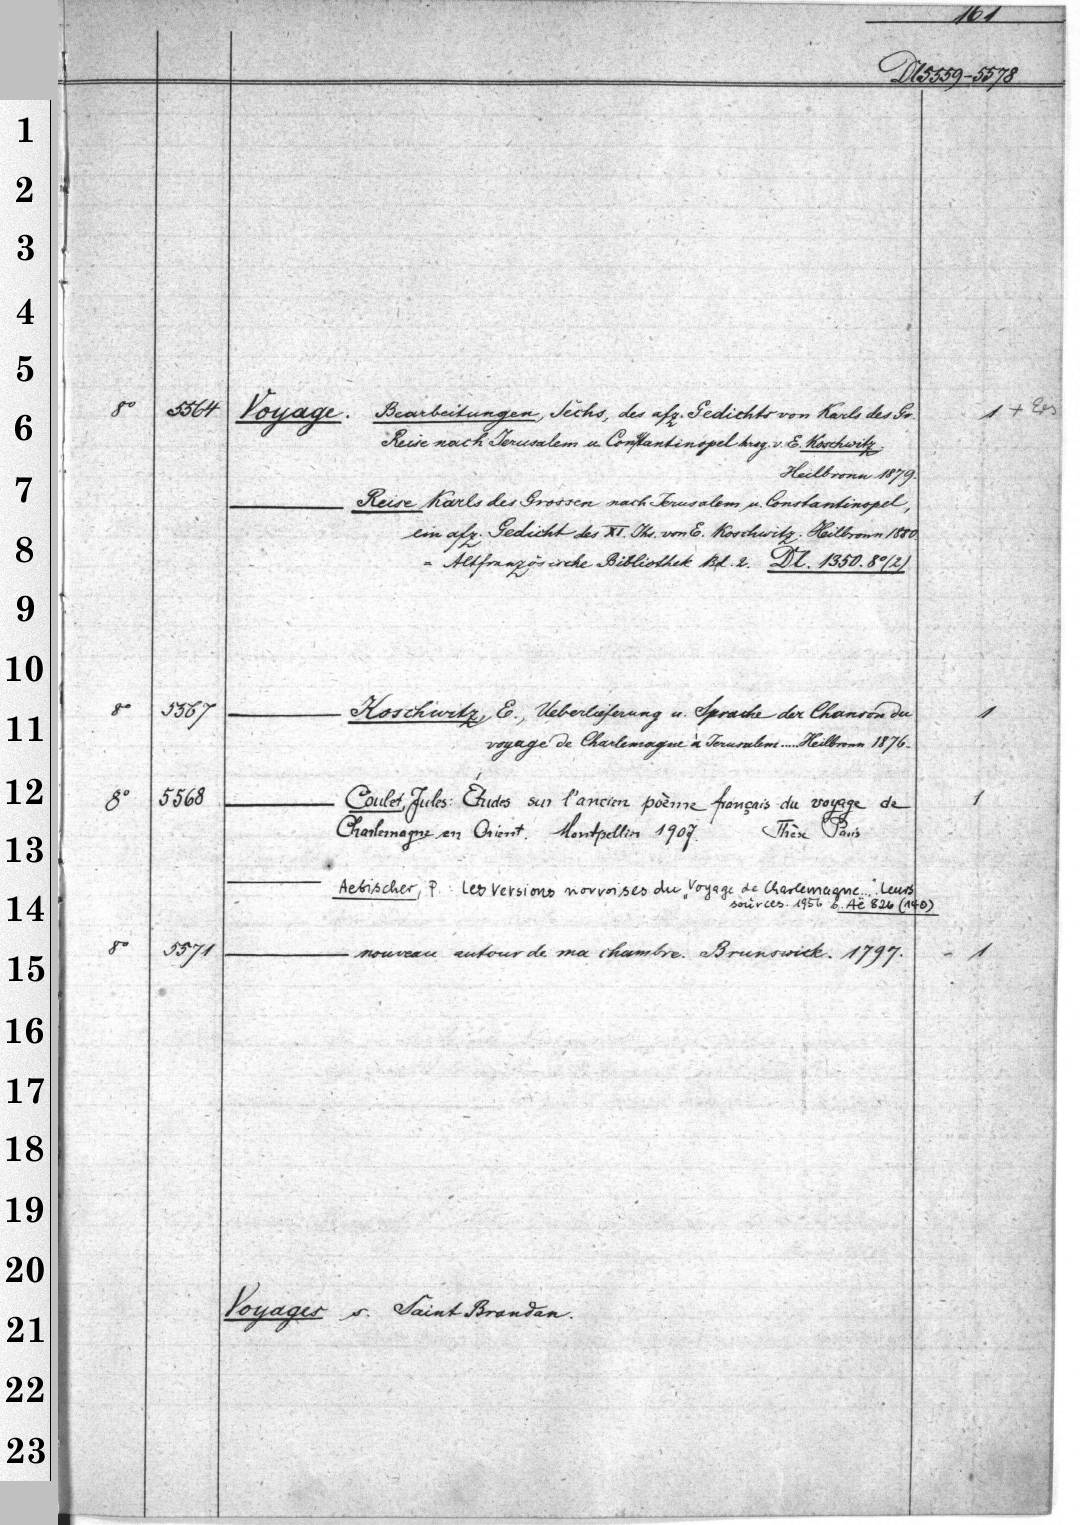 161
Dl 5559-5578
1
2
3
4
5
6
7
8
9
10
11
12
13
14
15
16
17
18
19
20
21
22
23
8° 5564 Voyage. Bearbeitungen, Sechs, des afz. Gedichts von Karls des Gr. 1 +
Reise nach Jerusalem u. Constantinopel hrsg. v. E. Koschwitz.
Heilbronn 1879.
Reise Karls des Grossen nach Jerusalem u. Constantinopel,
ein afz. Gedicht des XI. Jhs. von E. Koschwitz. Heilbronn 1880
= Altfranzösische Bibliothek Bd. 2. Dl. 1350. 8° (2)
8° 5567 Koschwitz, E., Ueberlieferung u. Sprache der Chanson du 1
voyage de Charlemagne à Jerusalem ..... Heilbronn 1876.
8° 5568 Coulet, Jules: Études sur l'ancien poème français du voyage de 1
Charlemagne en Orient. Montpellin 1907. Thèse Paris
Aebischer, P.: Les versions norroises du „Voyage de Charlemagne..." Leurs
sources. 1956 6. Ae 826 (140)
8° 5571 nouveau autour de ma chambre. Brunswick. 1797. - 1
Voyages s. Saint Brandan.